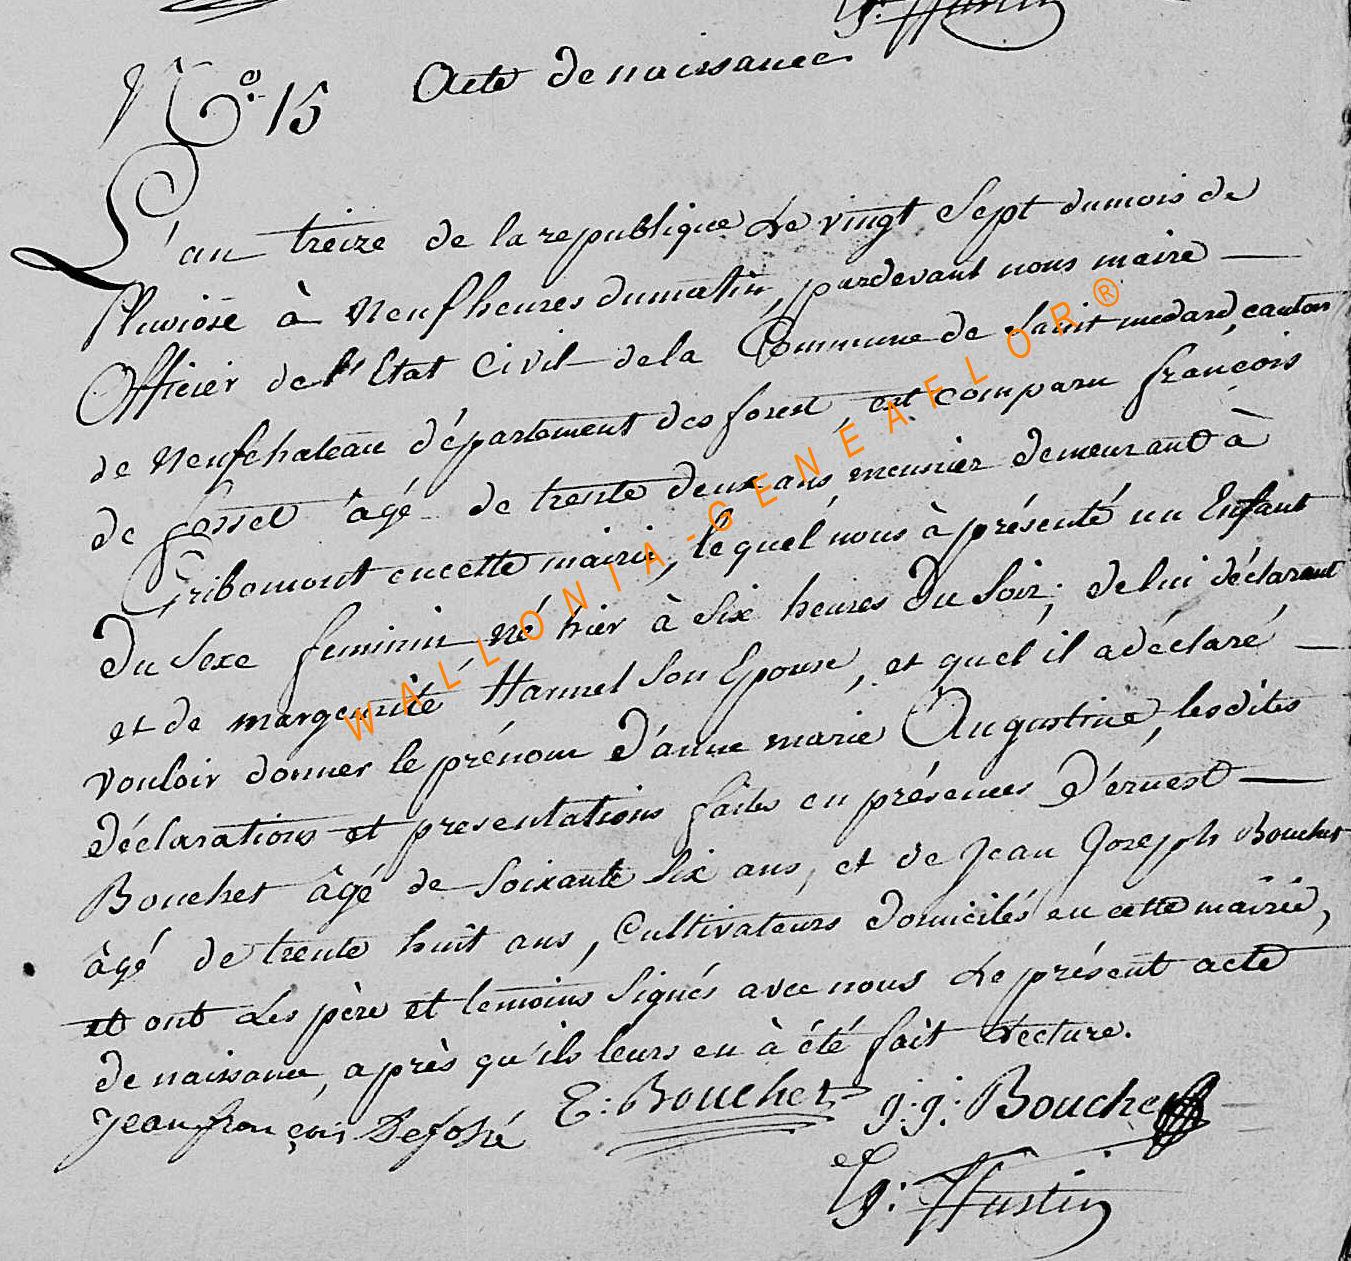 g. Hustin
N.o 15 Acte de naissance.
L'an treize de la republique Le vingt Sept du mois de
Pluviose à Neuf heures du matin, pardevant nous maire
Officier de l'Etat Civil de la Commune de Saint medard, canton
de Neufchateau département des forest, est comparu françois
de fosset âgé de trente deux ans, meunier demeurant à
Gribomont en cette mairie, lequel nous à présenté un Enfant
Du Sexe feminin né hier à Six heures Du Soir, de lui déclarant
et de margeurité Hannel Son Epouse, et quel il a déclaré
vouloir donner le prénom D'anne marie Augustine, lesdites
déclarations et presentations faites en présences D'érnest
Bouchet âgé de soixante six ans, et de Jean Joseph Bouchet
âgé de trente huit ans, Cultivateurs domicilés en cette mairie,
et ont Les père et temoins Signés avec nous Le présent acte
de naissance, après qu'ils leurs en à été fait Lecture.
Jean françois Defossé E: Bouchet j: j: Bouchet
g: Hustin
WALLONIA-GENEAFLOR®